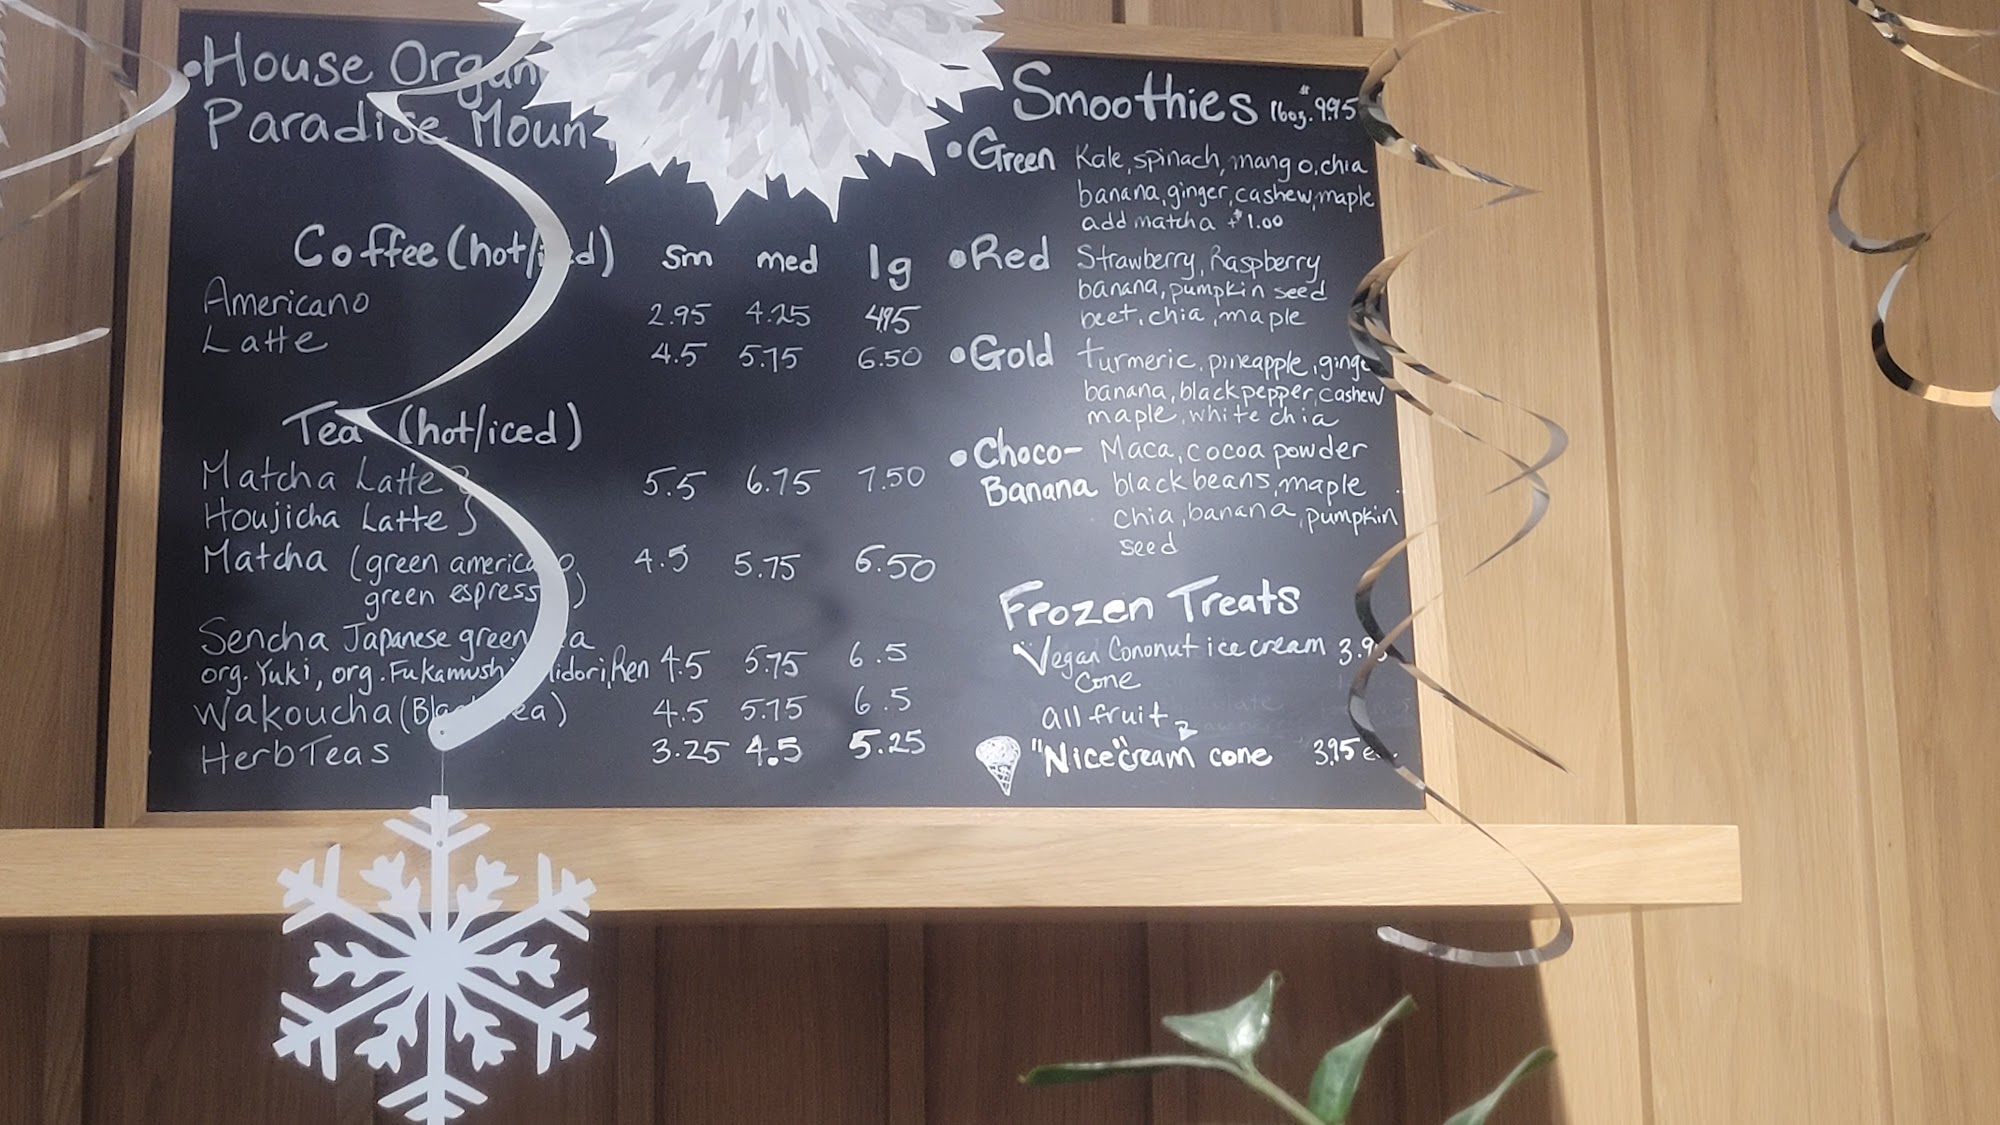 •House Organ
Paradise Moun
Coffee (hot/iced) sm med lg
Americano 2.95 4.25 4.95
Latte 4.5 5.75 6.50
Tea (hot/iced)
Matcha Latte
Houjicha Latte 5.5 6.75 7.50
Matcha (green americano 4.5 5.75 6.50
green espress )
Sencha Japanese green tea
org. Yuki, org. Fukamushi Midori, Ren 4.5 5.75 6.5
Wakoucha (Black Tea) 4.5 5.75 6.5
Herb Teas 3.25 4.5 5.25
Smoothies 16oz. $9.95
•Green Kale, spinach, mango, chia
banana, ginger, cashew, maple
add matcha +$1.00
•Red Strawberry, Raspberry
banana, pumpkin seed
beet, chia, maple
•Gold turmeric, pineapple, ginge
banana, black pepper, cashew
maple, white chia
•Choco- Maca, cocoa powder
Banana black beans, maple
chia, banana, pumpkin
seed
Frozen Treats
Vegan Cononut ice cream 3.95
cone
all fruit
"Nice" cream cone 3.95 e